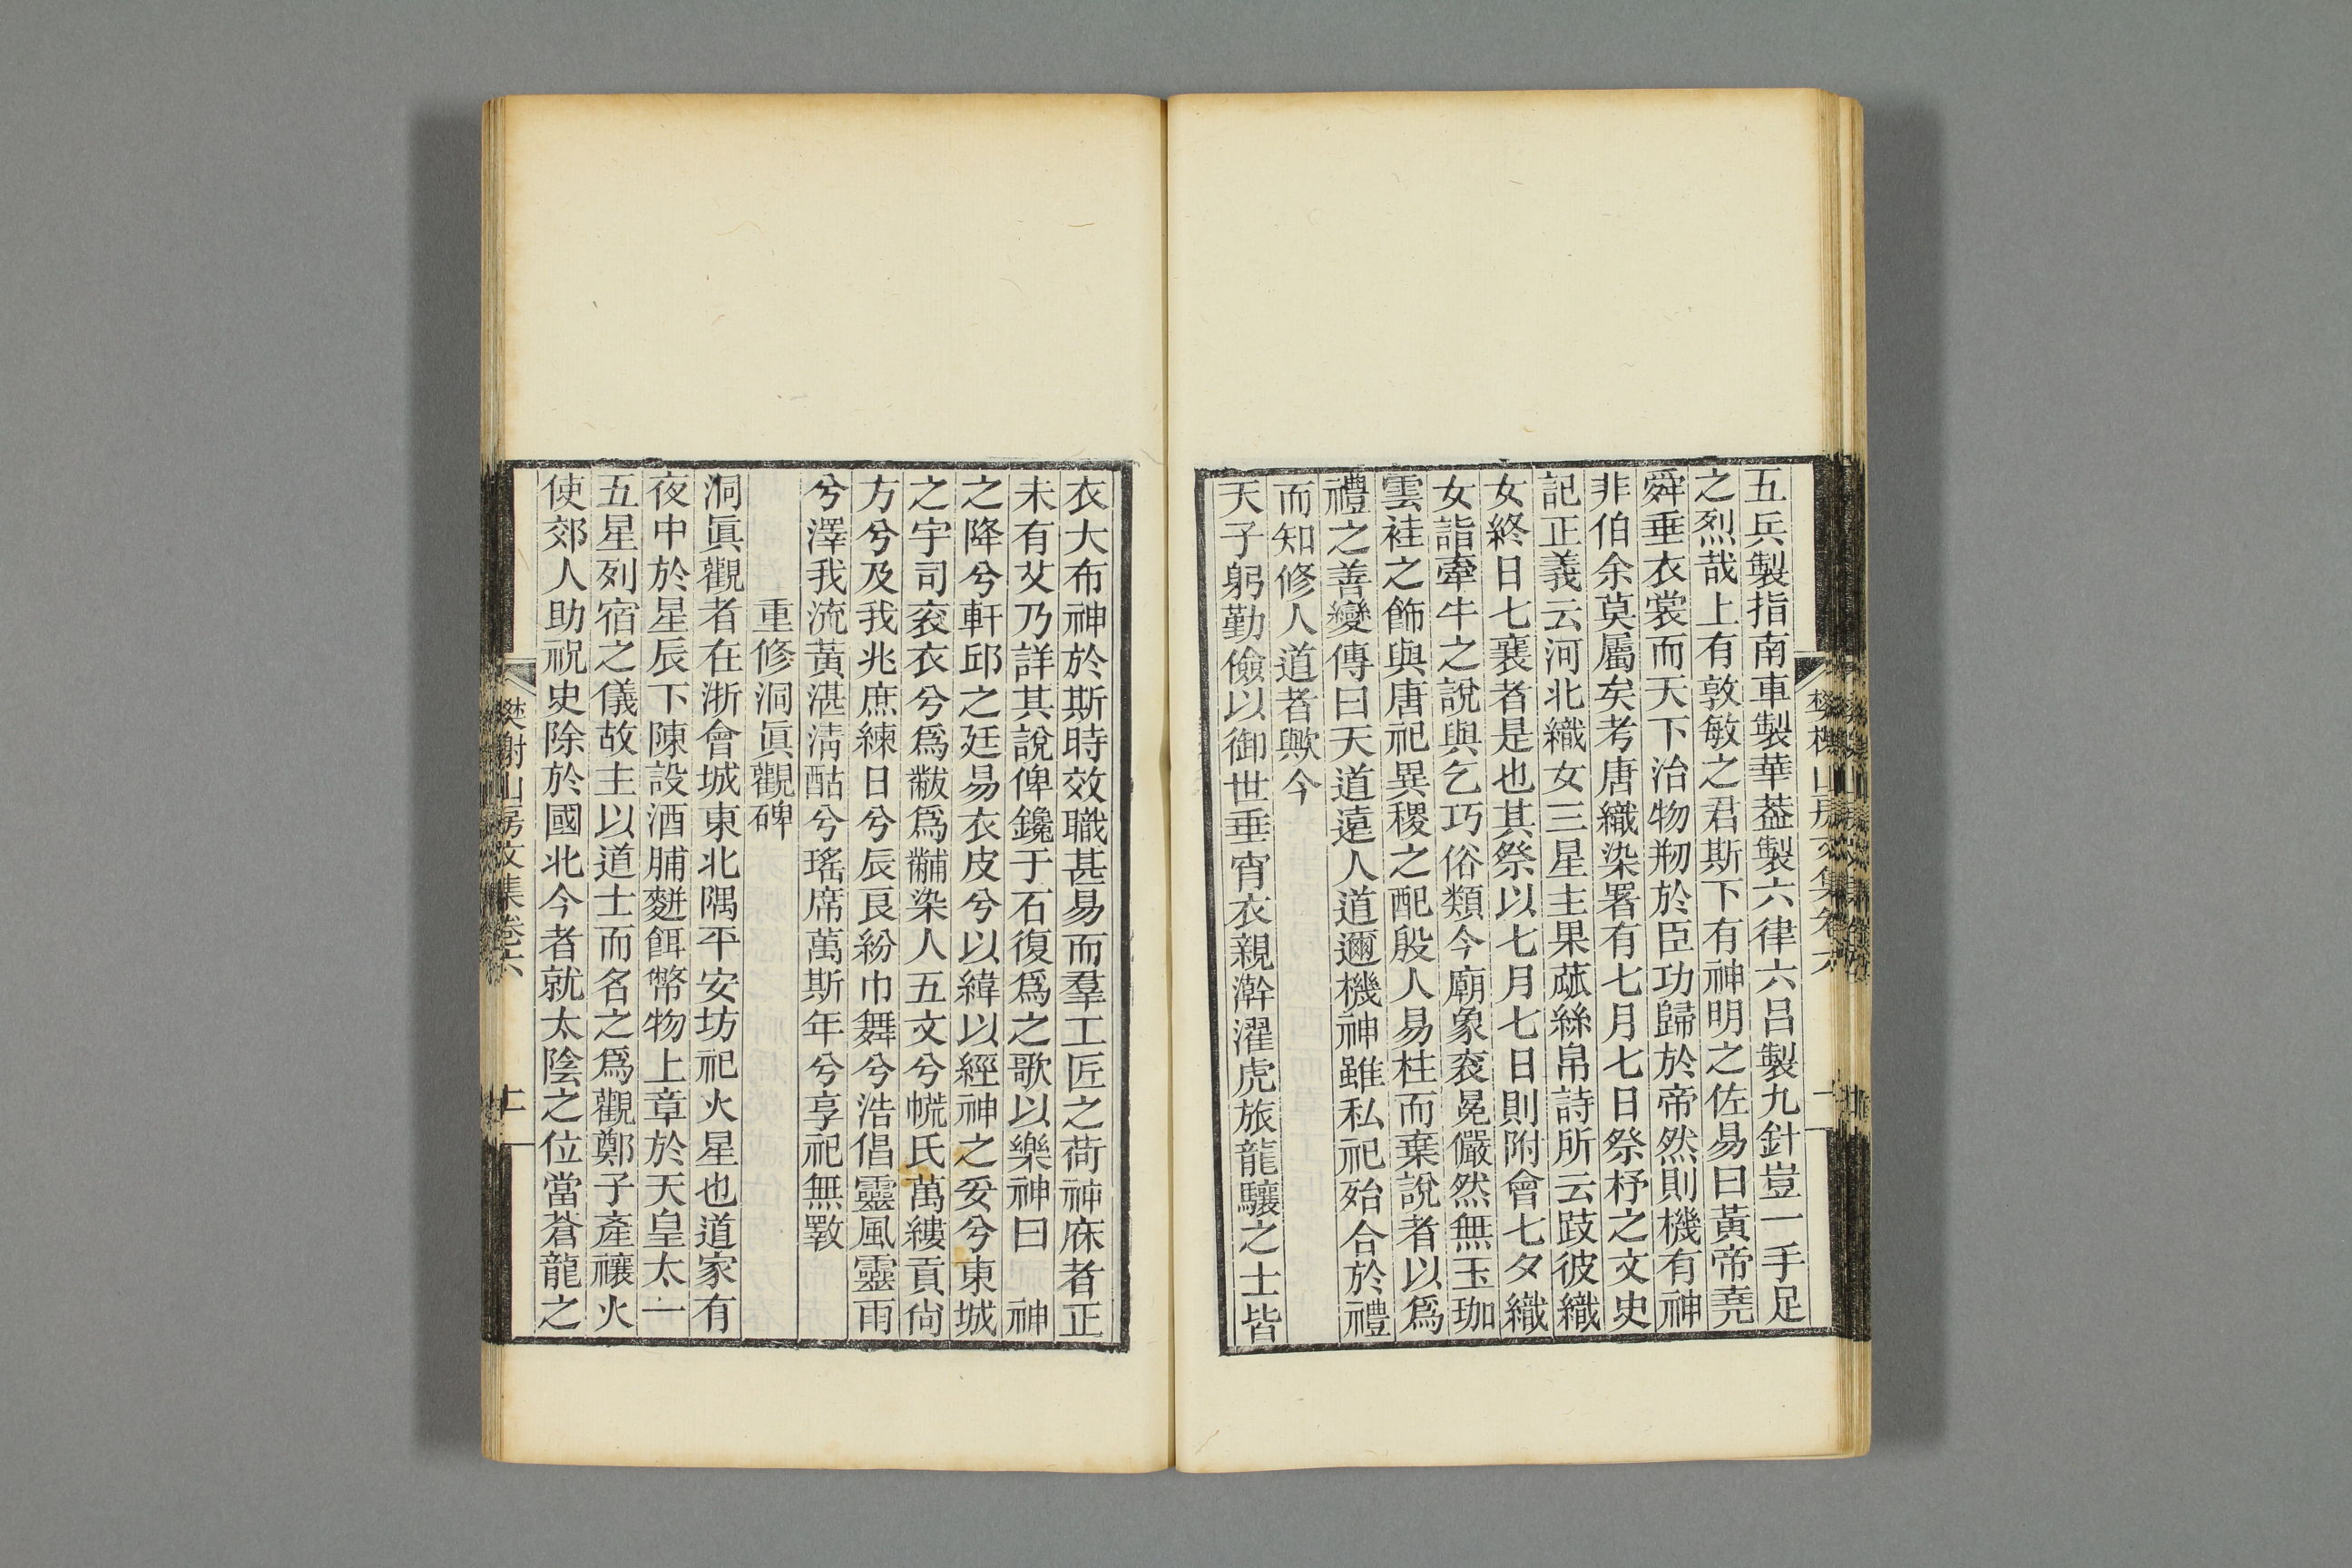 五兵製指南車製華葢製六律六呂製九針豈一手足
之烈哉上有敦敏之君斯下有神明之佐易曰黃帝堯
舜垂衣裳而天下治物剏於臣功歸於帝然則機有神
非伯余莫屬矣考唐織染署有七月七日祭杼之文史
記正義云河北織女三星主果蓏絲帛詩所云跂彼織
女終日七襄者是也其祭以七月七日則附會七夕織
女詣牽牛之說與乞巧俗類今廟象衮冕儼然無玉珈
雲袿之飾與唐祀異稷之配殷人易柱而棄說者以爲
禮之善變傳曰天道遠人道邇機神雖私祀殆合於禮
而知修人道者歟今
天子躬勤儉以御世垂宵衣親澣濯虎旅龍驤之士皆
衣大布神於斯時效職甚易而羣工匠之荷神庥者正
未有艾乃詳其說俾鑱于石復爲之歌以樂神曰　神
之降兮軒邱之廷易衣皮兮以緯以經神之妥兮東城
之宇司衮衣兮爲黻爲黼染人五文兮㡆氏萬縷貢尙
方兮及我兆庶練日兮辰良紛巾舞兮浩倡靈風靈雨
兮澤我流黃湛淸酤兮瑤席萬斯年兮享祀無斁
重修洞眞觀碑
洞眞觀者在浙會城東北隅平安坊祀火星也道家有
夜中於星辰下陳設酒脯麪餌幣物上章於天皇太一
五星列宿之儀故主以道士而名之爲觀鄭子產禳火
使郊人助祝史除於國北今者就太陰之位當蒼龍之
樊榭山房文集卷六
二